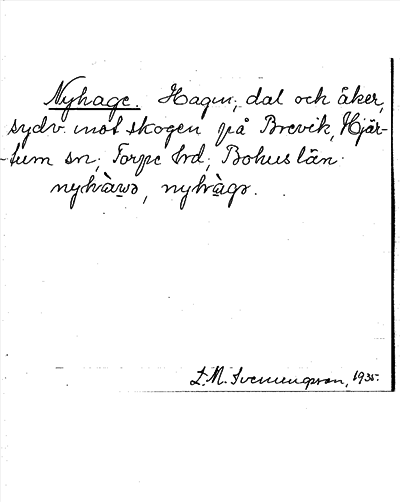 Nyhage. Hagm, dal och åker,
sydv. mot skogen på Brevik, Hjär-
tum sn; Torpe hrd; Bohus län.
nyhàwə, nyhàgə.
L. M. Svenungsson, 1935.